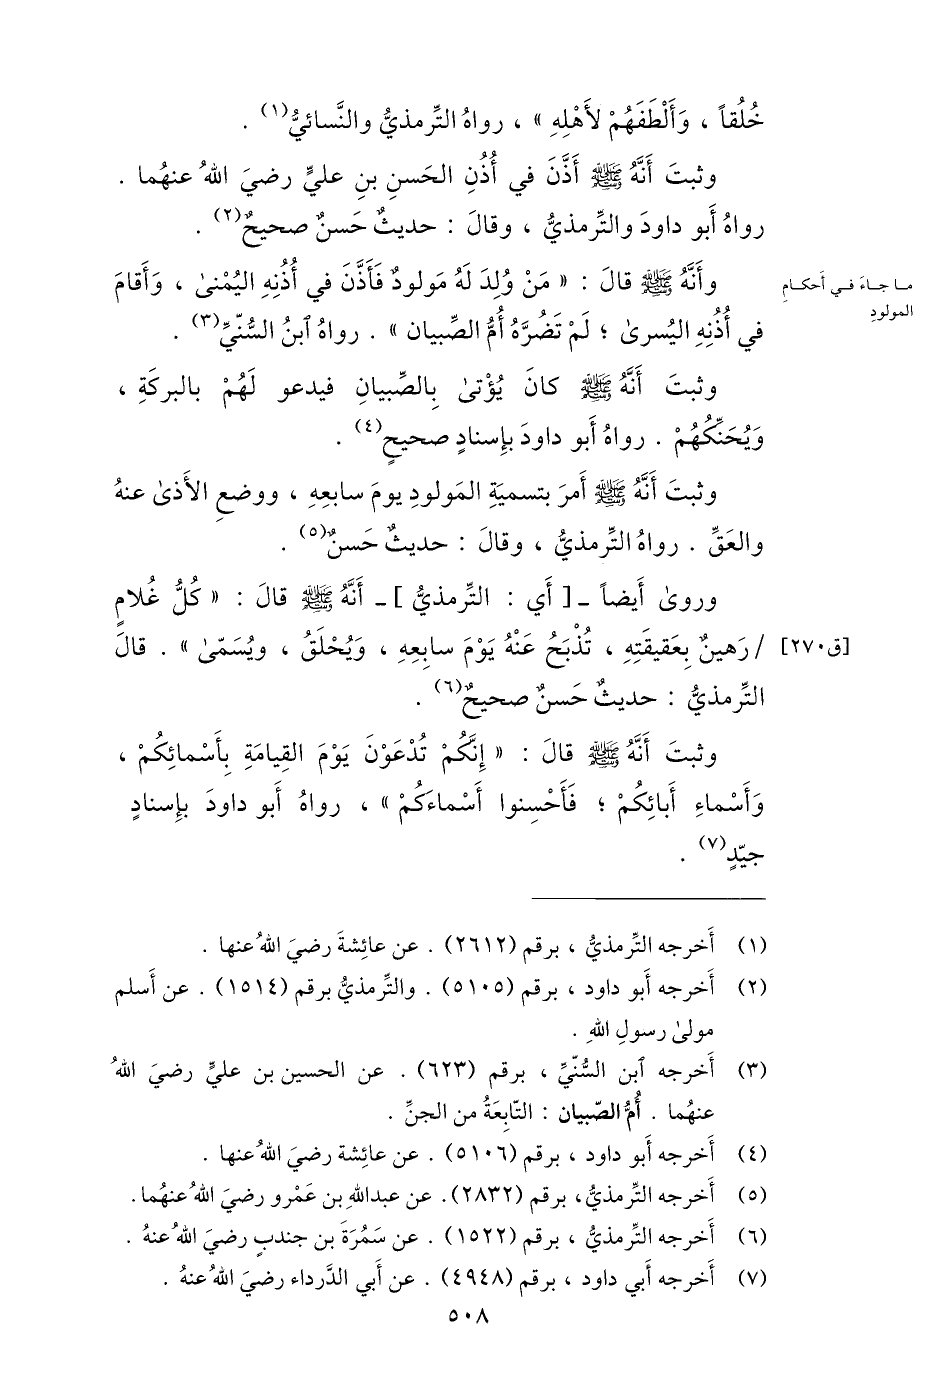 خُلُقاً ، وَأَلْطَفَهُمْ لأَهْلِهِ » ، رواهُ التِّرمذيُّ والنَّسائيُّ(١) .
وثبتَ أَنَّهُ ﷺ أَذَّنَ في أُذُنِ الحَسنِ بنِ عليٍّ رضيَ اللهُ عنهُما .
رواهُ أَبو داودَ والتِّرمذيُّ ، وقالَ : حديثٌ حَسنٌ صحيحٌ(٢) .
ما جاءَ في أَحكامِ
المولودِ
وأَنَّهُ ﷺ قالَ : « مَنْ وُلِدَ لَهُ مَولودٌ فَأَذَّنَ في أُذُنِهِ اليُمْنىٰ ، وَأَقامَ
في أُذُنِهِ اليُسرىٰ ؛ لَمْ تَضُرَّهُ أُمُّ الصِّبيان » . رواهُ ٱبنُ السُّنّيِّ(٣) .
وثبتَ أَنَّهُ ﷺ كانَ يُؤْتىٰ بِالصِّبيانِ فيدعو لَهُمْ بالبركَةِ ،
وَيُحَنِّكُهُمْ . رواهُ أَبو داودَ بإِسنادٍ صحيحٍ(٤) .
وثبتَ أَنَّهُ ﷺ أَمرَ بتسميَةِ المَولودِ يومَ سابعِهِ ، ووضعِ الأَذىٰ عنهُ
والعَقِّ . رواهُ التِّرمذيُّ ، وقالَ : حديثٌ حَسنٌ(٥) .
وروىٰ أَيضاً ـ[ أَي : التِّرمذيُّ ]ـ أَنَّهُ ﷺ قالَ : « كُلُّ غُلامٍ
[ق٢٧٠] / رَهينٌ بِعَقيقَتِهِ ، تُذْبَحُ عَنْهُ يَوْمَ سابِعِهِ ، وَيُحْلَقُ ، ويُسَمّىٰ » . قالَ
التِّرمذيُّ : حديثٌ حَسنٌ صحيحٌ(٦) .
وثبتَ أَنَّهُ ﷺ قالَ : « إِنَّكُمْ تُدْعَوْنَ يَوْمَ القِيامَةِ بِأَسْمائِكُمْ ،
وَأَسْماءِ أَبائِكُمْ ؛ فَأَحْسِنوا أَسْماءَكُمْ » ، رواهُ أَبو داودَ بإِسنادٍ
جيّدٍ(٧) .
(١) أَخرجه التِّرمذيُّ ، برقم (٢٦١٢) . عن عائِشةَ رضيَ اللهُ عنها .
(٢) أَخرجه أَبو داود ، برقم (٥١٠٥) . والتِّرمذيُّ برقم (١٥١٤) . عن أَسلم
مولىٰ رسولِ اللهِ .
(٣) أَخرجه ٱبن السُّنّيِّ ، برقم (٦٢٣) . عن الحسين بن عليٍّ رضيَ اللهُ
عنهُما . أُمُّ الصّبيان : التّابِعَةُ من الجنِّ .
(٤) أَخرجه أَبو داود ، برقم (٥١٠٦) . عن عائِشة رضيَ اللهُ عنها .
(٥) أَخرجه التِّرمذيُّ، برقم (٢٨٣٢). عن عبداللهِ بن عَمْرو رضيَ اللهُ عنهُما.
(٦) أَخرجه التِّرمذيُّ ، برقم (١٥٢٢) . عن سَمُرَةَ بن جندبٍ رضيَ اللهُ عنهُ .
(٧) أَخرجه أَبي داود ، برقم (٤٩٤٨) . عن أَبي الدَّرداء رضيَ اللهُ عنهُ .
٥٠٨